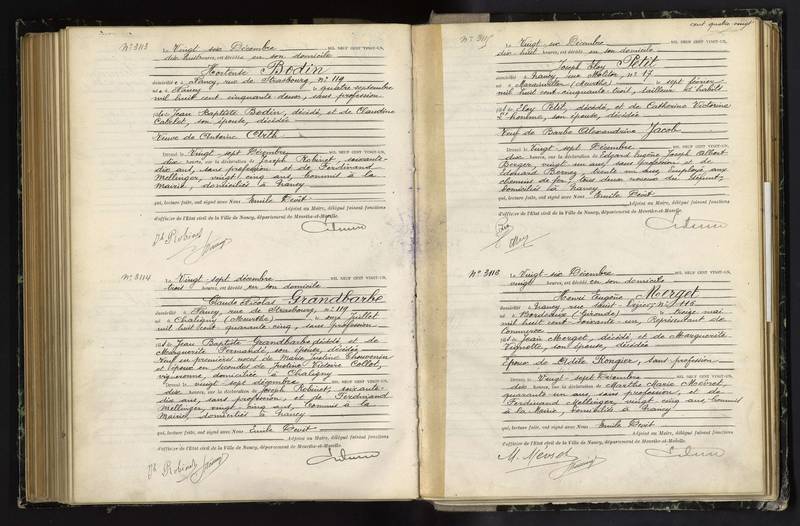 N° 3113
Le Vingt-six Décembre MIL NEUF CENT VINGT-UN,
dix-huit heures, est décédé en son domicile
Hortense Bodin
domicilié à Nancy, rue de Strasbourg, n° 119
né à Nancy le quatre septembre
mil huit cent cinquante deux, sans profession
de Jean Baptiste Bodin, décédé, et de Claudine
son épouse, décédée
Veuve de Antoine
Dressé le Vingt-sept Décembre MIL NEUF CENT VINGT-UN,
dix heures, sur la déclaration de Joseph Robinet, soixante-
dix ans, sans profession et de Ferdinand
Mellinger, vingt-cinq ans, commis à la
Mairie, domiciliés à Nancy
qui, lecture faite, ont signé avec Nous Emile Devit
Adjoint au Maire, délégué faisant fonctions
d'officier de l'Etat civil de la Ville de Nancy, département de Meurthe-et-Moselle.
Jh Robinet
N° 3114
Le Vingt-sept décembre MIL NEUF CENT VINGT-UN,
trois heures, est décédé en son domicile
Claude Nicolas Grandbarbe
domicilié à Nancy, rue de Strasbourg, n° 119
né à Chaligny (Meurthe) le onze Juillet
mil huit cent quarante cinq, sans profession
de Jean Baptiste Grandbarbe décédé, et de
Marguerite son épouse, décédée
Veuf en premières noces de Marie Justine Thouvenin
et époux en secondes de Justine Victoire Collot,
vigneronne, domiciliée à Chaligny
Dressé le vingt sept décembre MIL NEUF CENT VINGT-UN,
dix heures, sur la déclaration de Joseph Robinet, soixante-
dix ans, sans profession, et de Ferdinand
Mellinger, vingt-cinq ans, commis à la
Mairie, domiciliés à Nancy
qui, lecture faite, ont signé avec Nous Emile Devit
Adjoint au Maire, délégué faisant fonctions
d'officier de l'Etat civil de la Ville de Nancy, département de Meurthe-et-Moselle.
Jh Robinet
cent quatre vingt
N° 3115
Le Vingt-six Décembre MIL NEUF CENT VINGT-UN,
dix-huit heures, est décédé en son domicile
Joseph Eloy Petit
domicilié à Nancy, rue Molitor, n° 17
né à (Meurthe) le sept février
mil huit cent cinquante-trois, tailleur d'habits
de Eloy Petit, décédé, et de Catherine Victorine
L'homme, son épouse, décédée
Veuf de Barbe Alexandrine Jacob
Dressé le Vingt-sept Décembre MIL NEUF CENT VINGT-UN,
dix heures, sur la déclaration de Edgard Eugène Joseph Albert
Berger, vingt-un ans, sans profession et de
Edouard trente un ans, employé aux
chemins de fer, tous deux neveux du défunt,
domiciliés à Nancy
qui, lecture faite, ont signé avec Nous Emile Devit
Adjoint au Maire, délégué faisant fonctions
d'officier de l'Etat civil de la Ville de Nancy, département de Meurthe-et-Moselle.
N° 3116
Le Vingt-six Décembre MIL NEUF CENT VINGT-UN,
vingt heures, est décédé en son domicile
Henri Eugène Merget
domicilié à Nancy, rue Saint n° 116
né à Bordeaux (Gironde) le treize mai
mil huit cent soixante un, Représentant de
Commerce
de Jean Merget, décédé, et de Marguerite
Vignotte, son épouse, décédée
Epoux de Adèle Rongier, sans profession
Dressé le Vingt-sept Décembre MIL NEUF CENT VINGT-UN,
dix heures, sur la déclaration de Marthe Marie Mévrel,
quarante un ans, sans profession, et de
Ferdinand Mellinger, vingt-cinq ans commis
à la Mairie, domiciliés à Nancy
qui, lecture faite, ont signé avec Nous Emile Devit
Adjoint au Maire, délégué faisant fonctions
d'officier de l'Etat civil de la Ville de Nancy, département de Meurthe-et-Moselle.
M. Mévrel